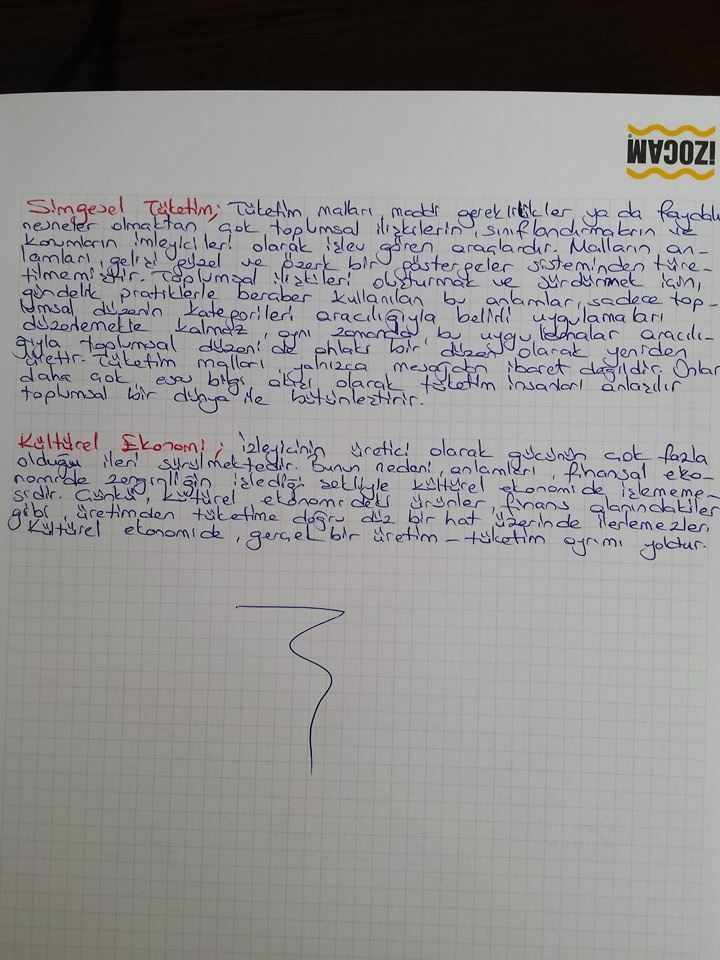 İZOCAM
Simgesel Tüketim; Tüketim malları, maddi gereklilikler ya da faydalı
nesneler olmaktan çok toplumsal ilişkilerin, sınıflandırmaların ve
konumların imleyicileri olarak işlev gören araçlardır. Malların an-
lamları, gelişi güzel ve özerk bir göstergeler sisteminden türe-
tilmemiştir. Toplumsal ilişkileri oluşturmak ve sürdürmek için,
gündelik pratiklerle beraber kullanılan bu anlamlar, sadece top-
lumsal düzenin kategorileri aracılığıyla belirli uygulamaları
düzenlemekte kalmaz, aynı zamanda, bu uygulamalar aracılı-
ğıyla toplumsal düzeni de ahlaki bir düzen olarak yeniden
üretir. Tüketim malları, yalnızca mesajdan ibaret değildir. Onlar
daha çok, esas bilgi akışı olarak tüketim insanları anlaşılır
toplumsal bir dünya ile bütünleştirir.
Kültürel Ekonomi; izleyicinin üretici olarak gücünün çok fazla
olduğu ileri sürülmektedir. Bunun nedeni, anlamları, finansal eko-
nomide zenginliğin izlediği şekliyle kültürel ekonomide izlememe-
sidir. Çünkü, kültürel ekonomideki ürünler, finans alanındakiler
gibi, üretimden tüketime doğru düz bir hat üzerinde ilerlemezler.
Kültürel ekonomide, gerçek bir üretim - tüketim ayrımı yoktur.